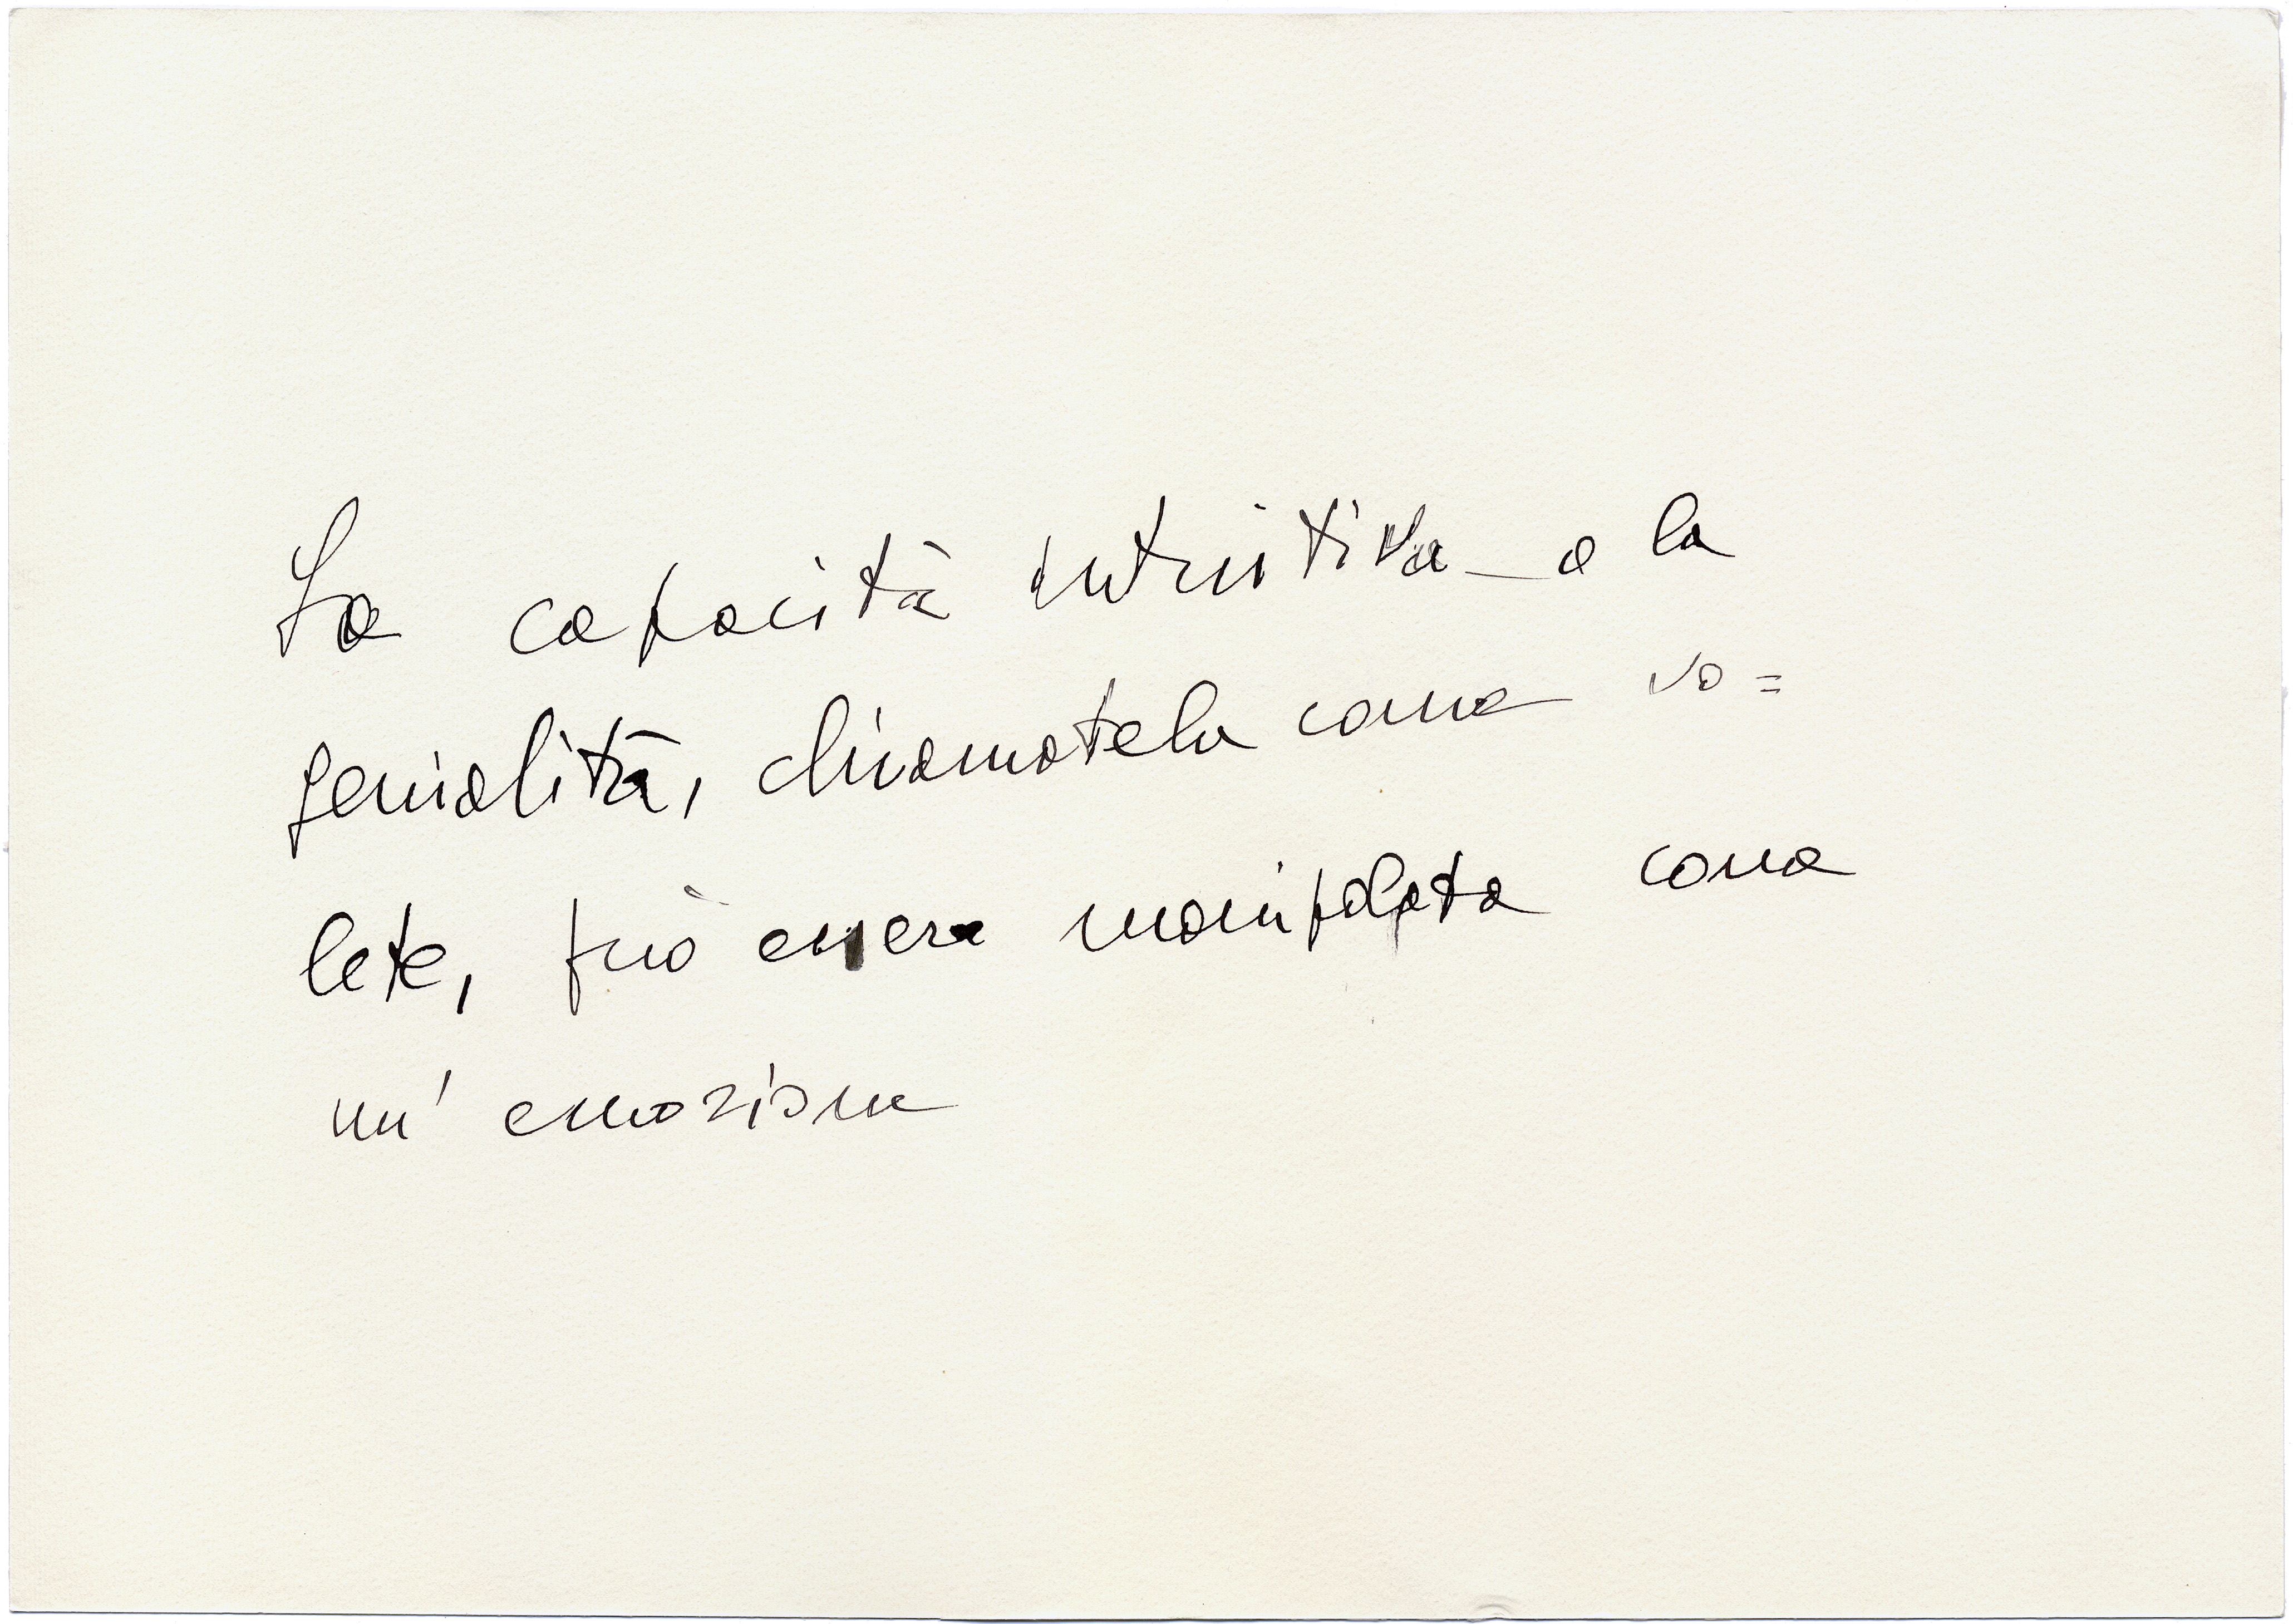 La capacità intuitiva o la
genialità, chiamatela come vo=
lete, può essere manipolata come
un' emozione